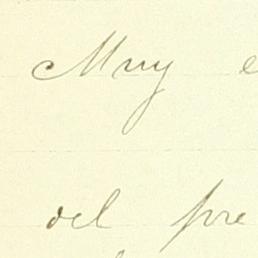 Muy e
del pre